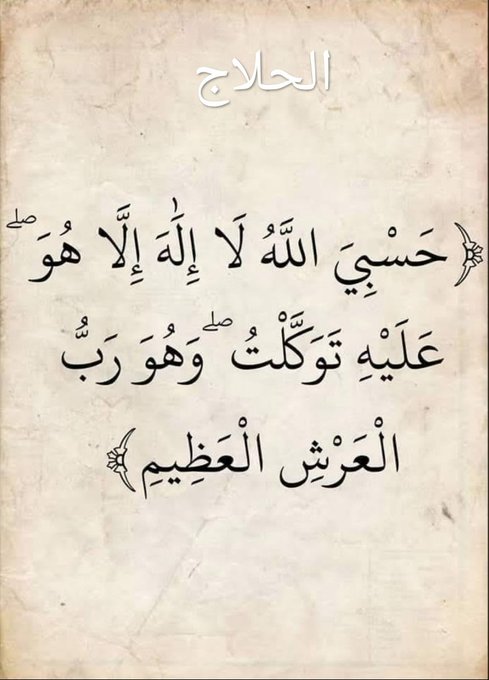 الحلاج
﴿حَسْبِيَ اللَّهُ لَا إِلَٰهَ إِلَّا هُوَ ۖ
عَلَيْهِ تَوَكَّلْتُ ۖ وَهُوَ رَبُّ
الْعَرْشِ الْعَظِيمِ﴾